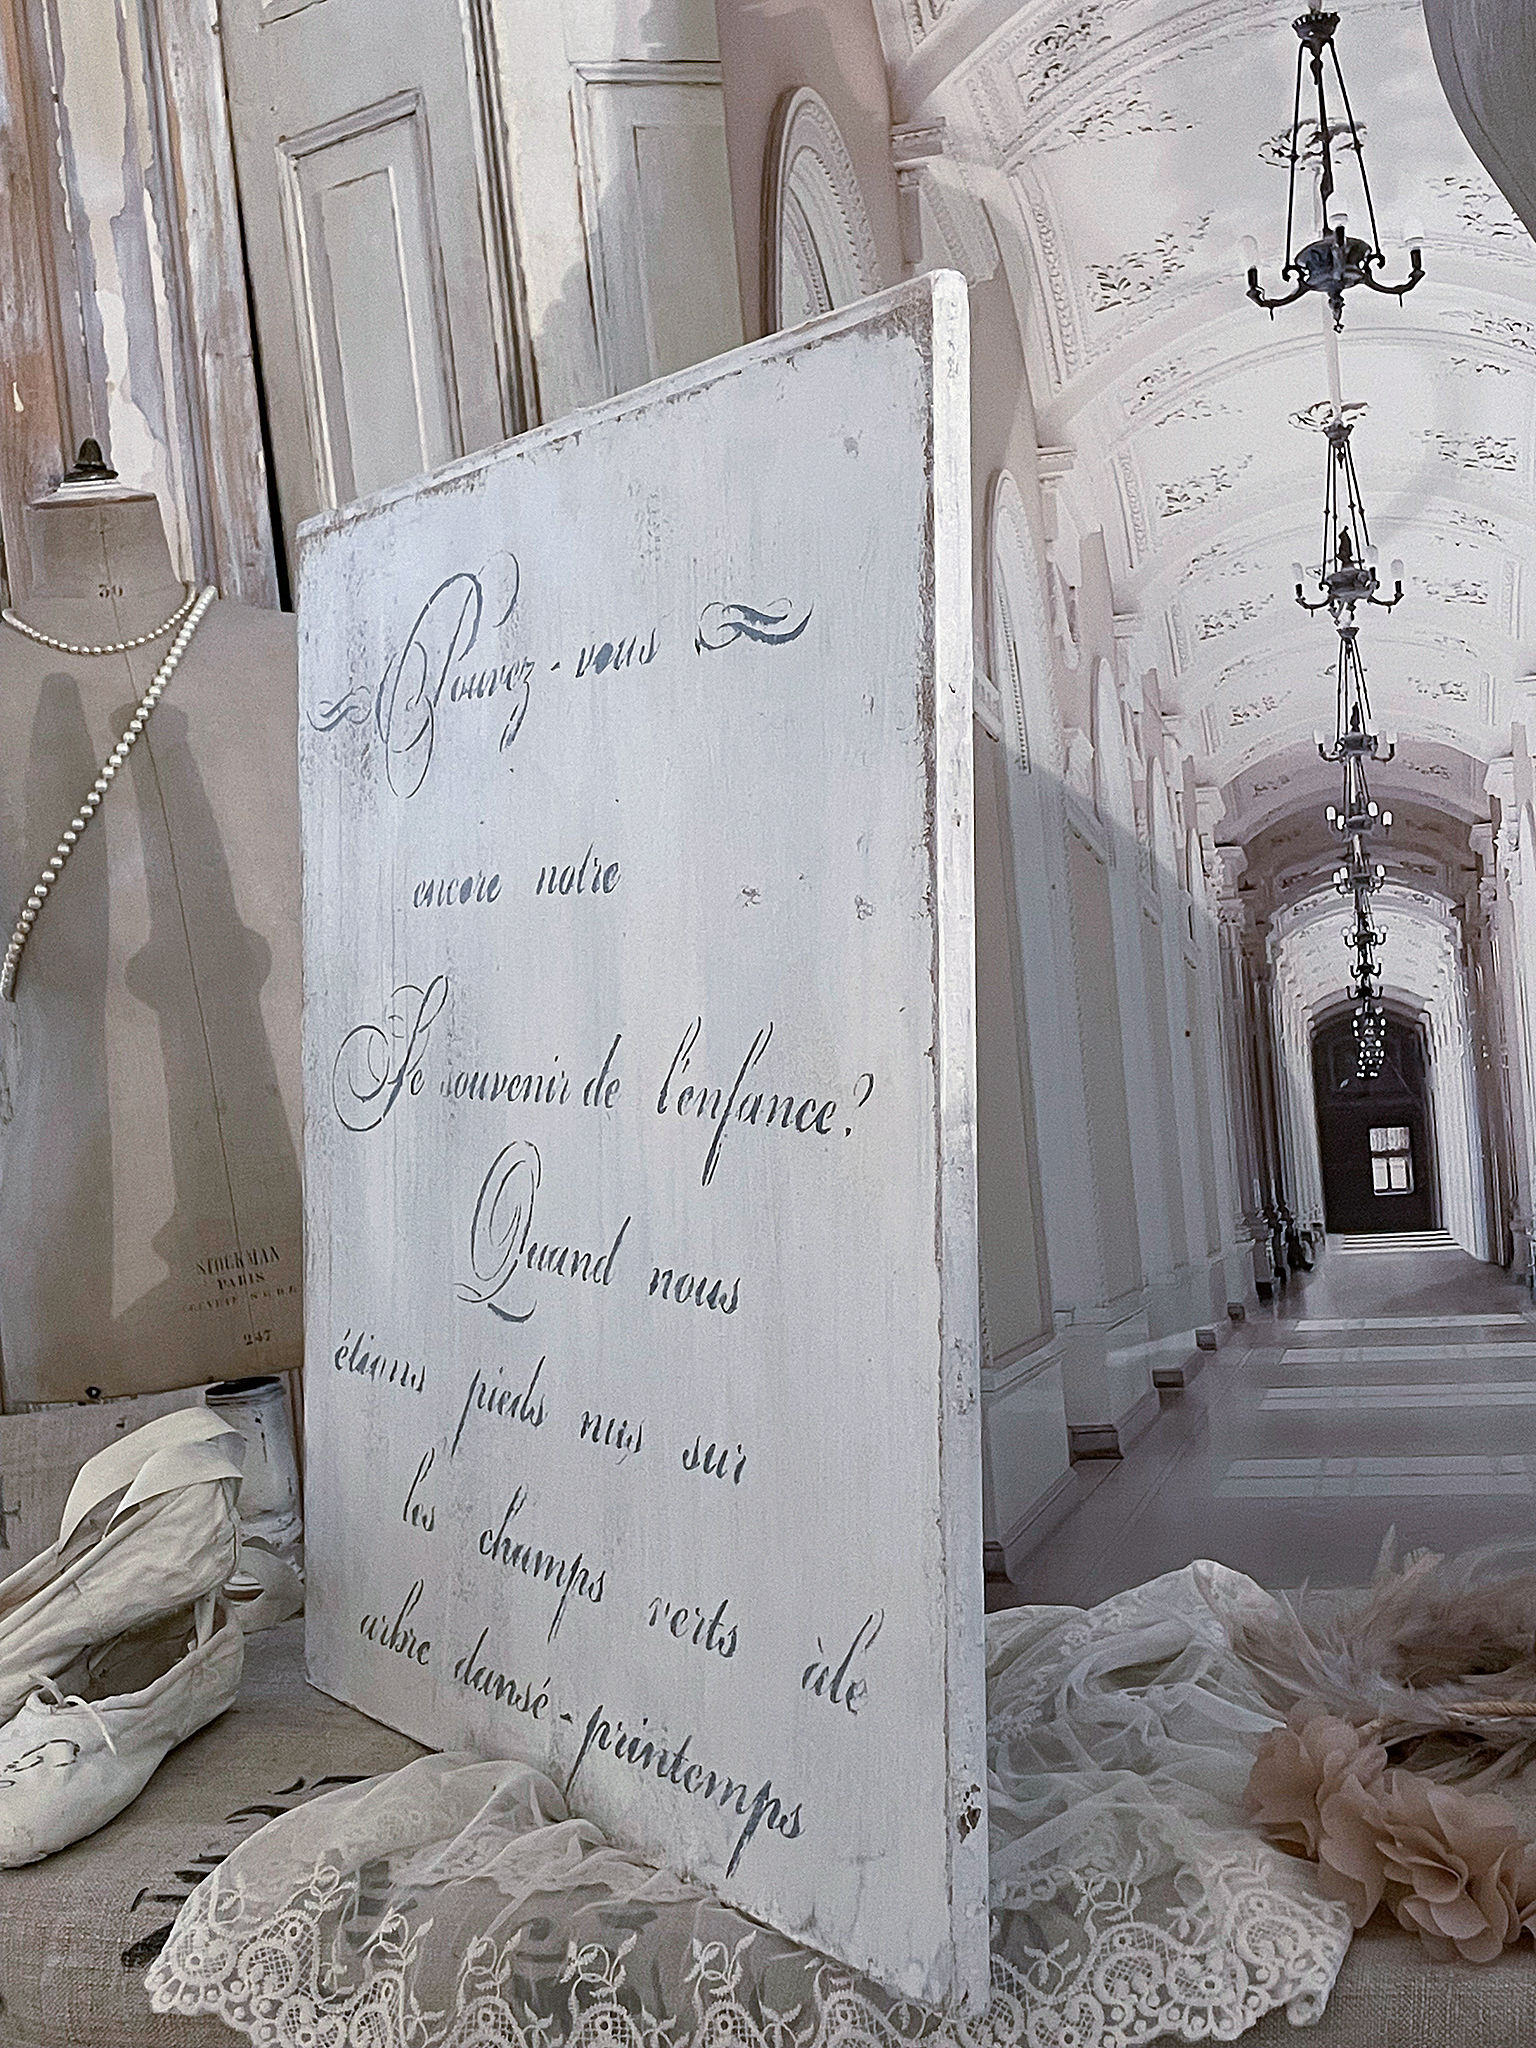 30
Pouvez-vous
encore notre
Se souvenir de l'enfance?
Quand nous
étions pieds nus sur
les champs verts àlé
arbre dansé-printemps
STOCKMAN
PARIS
247